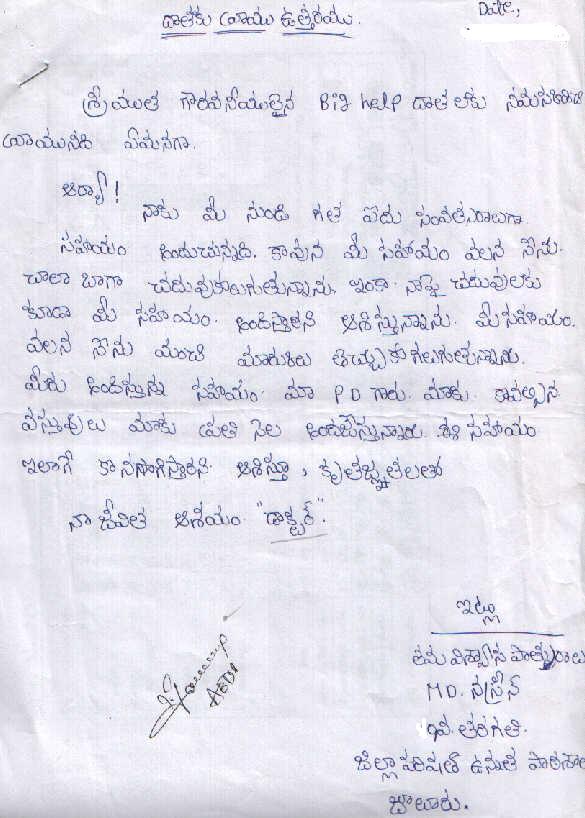 దాతకు వ్రాయు ఉత్తరము.
Date,
శ్రీయుత గౌరవనీయులైన Big help దాతలకు నమస్కరించి
వ్రాయునది ఏమనగా.
ఆర్యా!
నాకు మీ నుండి గత ఐదు సంవత్సరాలుగా
సహాయం అందుచున్నది. కావున మీ సహాయం వలన నేను
చాలా బాగా చదువుకోగలుగుతున్నాను. ఇంకా నాపై చదువులకు
కూడా మీ సహాయం. అందిస్తారని ఆశిస్తున్నాను. మీ సహాయం.
వలన నేను మంచి మార్కులు తెచ్చుకోగలుగుతున్నాను.
మీరు అందిస్తున్న సహాయం మా PD గారు. మాకు. కావల్సిన
వస్తువులు మాకు ప్రతి నెల అందజేస్తున్నారు. ఈ సహాయం
ఇలాగే కొనసాగిస్తారని ఆశిస్తూ, కృతజ్ఞతలతో
నా జీవిత ఆశయం "డాక్టర్".
ఇట్లు
తమ విశ్వాస పాత్రురాలు
MD. నస్రీన్
వ. తరగతి.
జిల్లా పరిషత్ ఉన్నత పాఠశాల